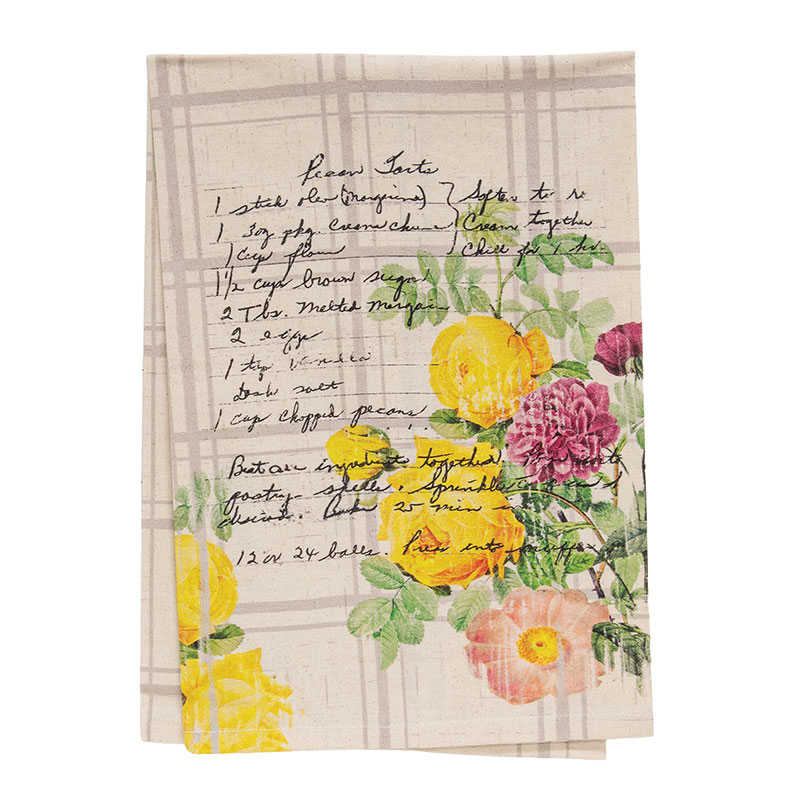 Pecan Tarts
1 stick oleo (Margarine) } Soften to
1 3oz pkg. Cream Cheese } Cream together
1 Cup flour } Chill for 1 hr.
1 1/2 cups brown sugar
2 Tbs. Melted Margarin
2 eggs
1 tsp Vanilla
Dash salt
1 cup chopped pecans
Beat all ingredients together.
pastry shells. Sprinkle
desired. Bake 25 min in
12 or 24 balls. Press into muffin